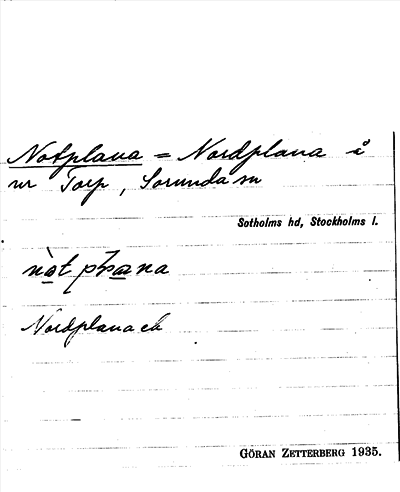 Notplana = Nordplana å
ur Torp, Sorunda sn
Sotholms hd, Stockholms l.
Nordplana ek
GÖRAN ZETTERBERG 1935.